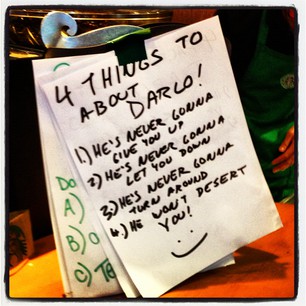 4 THINGS TO
ABOUT DARLO!
1) HE'S NEVER GONNA
GIVE YOU UP
2) HE'S NEVER GONNA
LET YOU DOWN
3) HE'S NEVER GONNA
TURN AROUND
4) HE WON'T DESERT
YOU!
DO
A)
B) O
C) TE